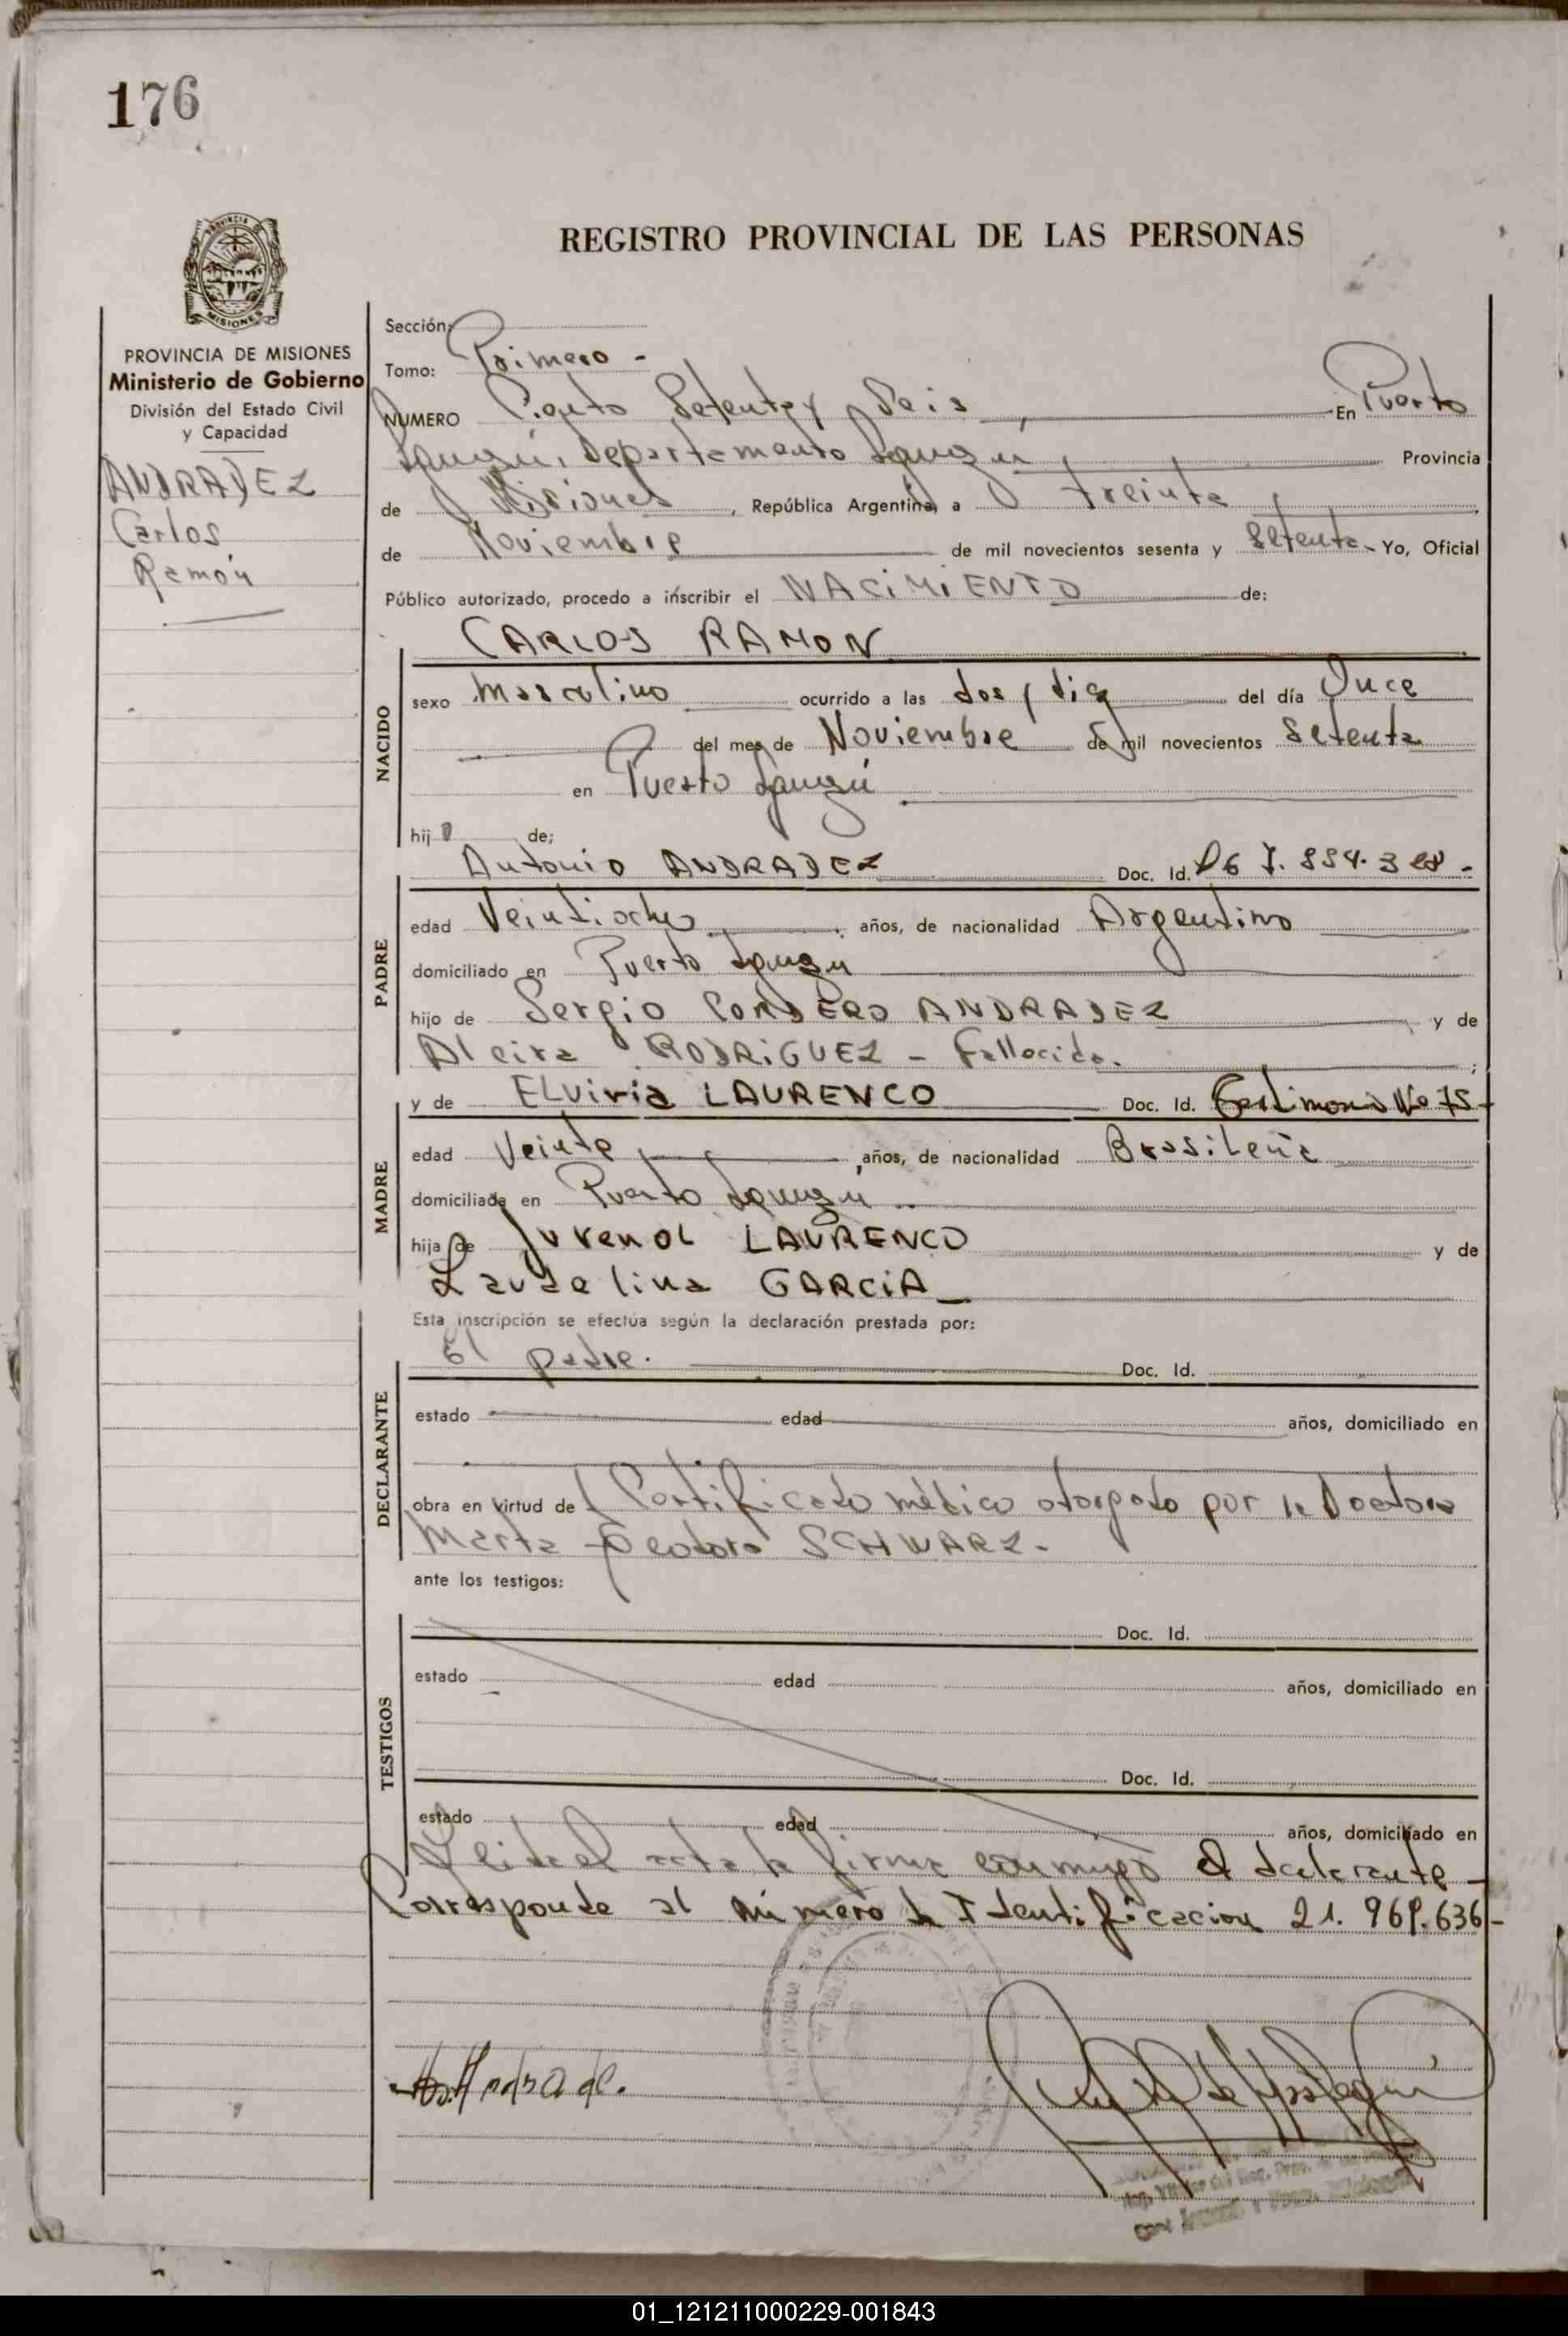 176
PROVINCIA
MISIONES
REGISTRO PROVINCIAL DE LAS PERSONAS
PROVINCIA DE MISIONES
Ministerio de Gobierno
División del Estado Civil
y Capacidad
ANDRADEZ
Carlos
Ramón
Sección:
Tomo: Primero -
NUMERO Ciento Setenta y Seis En Puerto
Iguazú, Departamento Iguazú Provincia
de Misiones, República Argentina, a treinta
de Noviembre de mil novecientos sesenta y Setenta - Yo, Oficial
Público autorizado, procedo a inscribir el NACIMIENTO de:
NACIDO
CARLOS RAMON
sexo masculino ocurrido a las dos y diez del día Once
del mes de Noviembre de mil novecientos Setenta
en Puerto Iguazú
hijo de;
PADRE
Antonio ANDRADEZ Doc. Id.
edad Veintiocho años, de nacionalidad Argentino
domiciliado en Puerto Iguazú
hijo de Sergio CORDERO ANDRADEZ y de
Alcira RODRIGUEZ - Fallecida.
MADRE
y de ELviria LAURENCO Doc. Id. Testimonio No 75-
edad Veinte años, de nacionalidad Brasileña
domiciliada en Puerto Iguazú
hija de Juvenal LAURENCO y de
Laudelina GARCIA
Esta inscripción se efectúa según la declaración prestada por:
DECLARANTE
El padre. Doc. Id.
estado edad años, domiciliado en
obra en virtud de Certificado médico otorgado por la Doctora
Marta Teodora SCHWARZ -
ante los testigos:
TESTIGOS
Doc. Id.
estado edad años, domiciliado en
Doc. Id.
estado edad años, domiciliado en
Leida el acta la firma conmigo el declarante -
Corresponde al número de Identificacion 21. 969.636 -
Andrade.
01_121211000229-001843